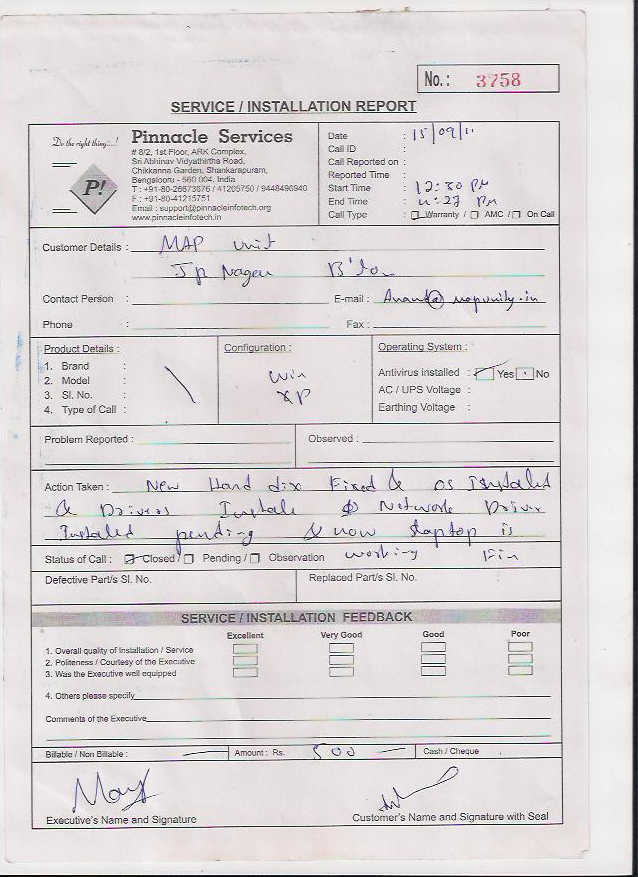 No.: 3758
SERVICE / INSTALLATION REPORT
Do the right thing:...!
P!
Pinnacle Services
# 8/2, 1st Floor, ARK Complex,
Sri Abhinav Vidyathirtha Road,
Chikkanna Garden, Shankarapuram,
Bengalooru - 560 004. India
T : +91-80-26673676 / 41205750 / 9448496940
F : +91-80-41215751
Email : support@pinnacleinfotech.org
www.pinnacleinfotech.in
Date : 15/09/11
Call ID :
Call Reported on :
Reported Time :
Start Time : 12:30 PM
End Time : :27 PM
Call Type : Warranty / AMC / On Call
Customer Details : MAP unit
Jp Nagar B'lor
Contact Person : E-mail : Anand@mapunity.in
Phone : Fax :
Product Details :
1. Brand :
2. Model :
3. Sl. No. :
4. Type of Call :
Configuration :
Win
XP
Operating System :
Antivirus installed : Yes No
AC / UPS Voltage :
Earthing Voltage :
Problem Reported : Observed :
Action Taken : New Hand dix Fixed & OS Installed
& Drivers Instale Network Driver
Instaled pending & now laptop is
Status of Call : Closed / Pending / Observation working Fin
Defective Part/s Sl. No. Replaced Part/s Sl. No.
SERVICE / INSTALLATION FEEDBACK
Excellent Very Good Good Poor
1. Overall quality of Installation / Service
2. Politeness / Courtesy of the Executive
3. Was the Executive well equipped
4. Others please specify
Comments of the Executive
Billable / Non Billable : Amount : Rs. 500 Cash / Cheque
Executive's Name and Signature
Customer's Name and Signature with Seal